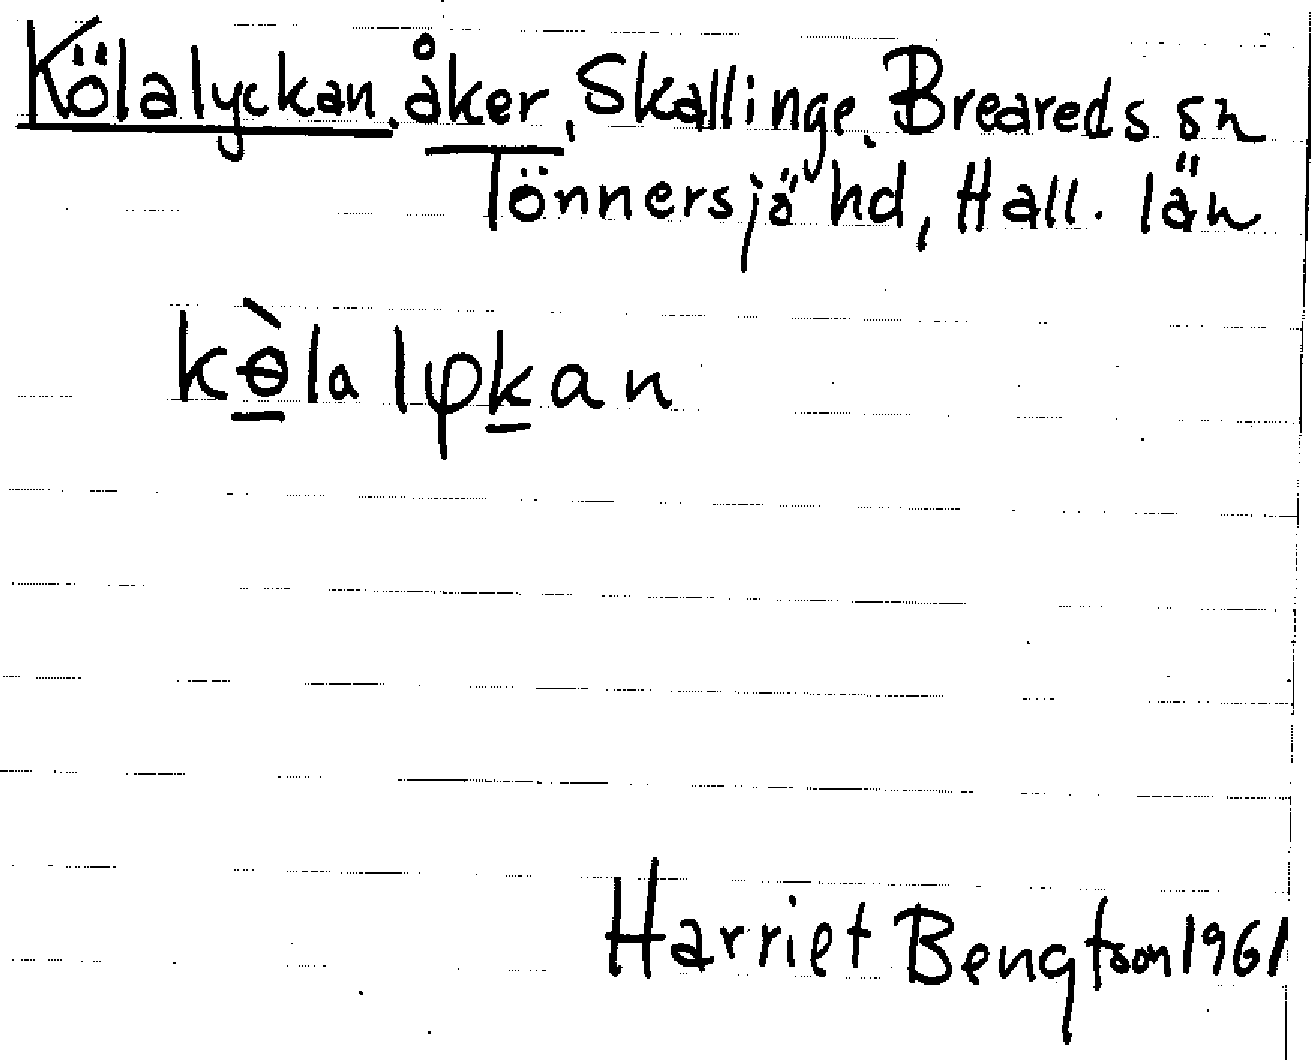 Kölalyckan, åker, Skallinge, Breareds sn
Tönnersjö hd, Hall. län
kɵ̀la lφkan
Harriet Bengtson 1961